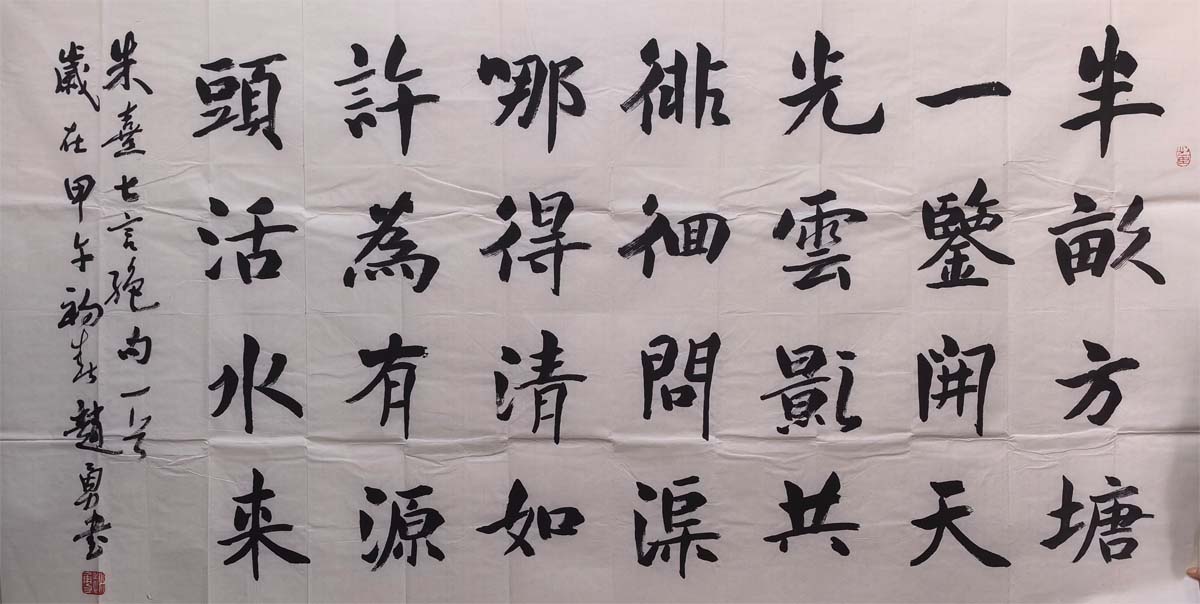 半畝方塘
一鑒開天
光雲影共
徘徊問渠
哪得清如
許為有源
頭活水来
朱熹七言絶句一首
歲在甲午初春趙勇書